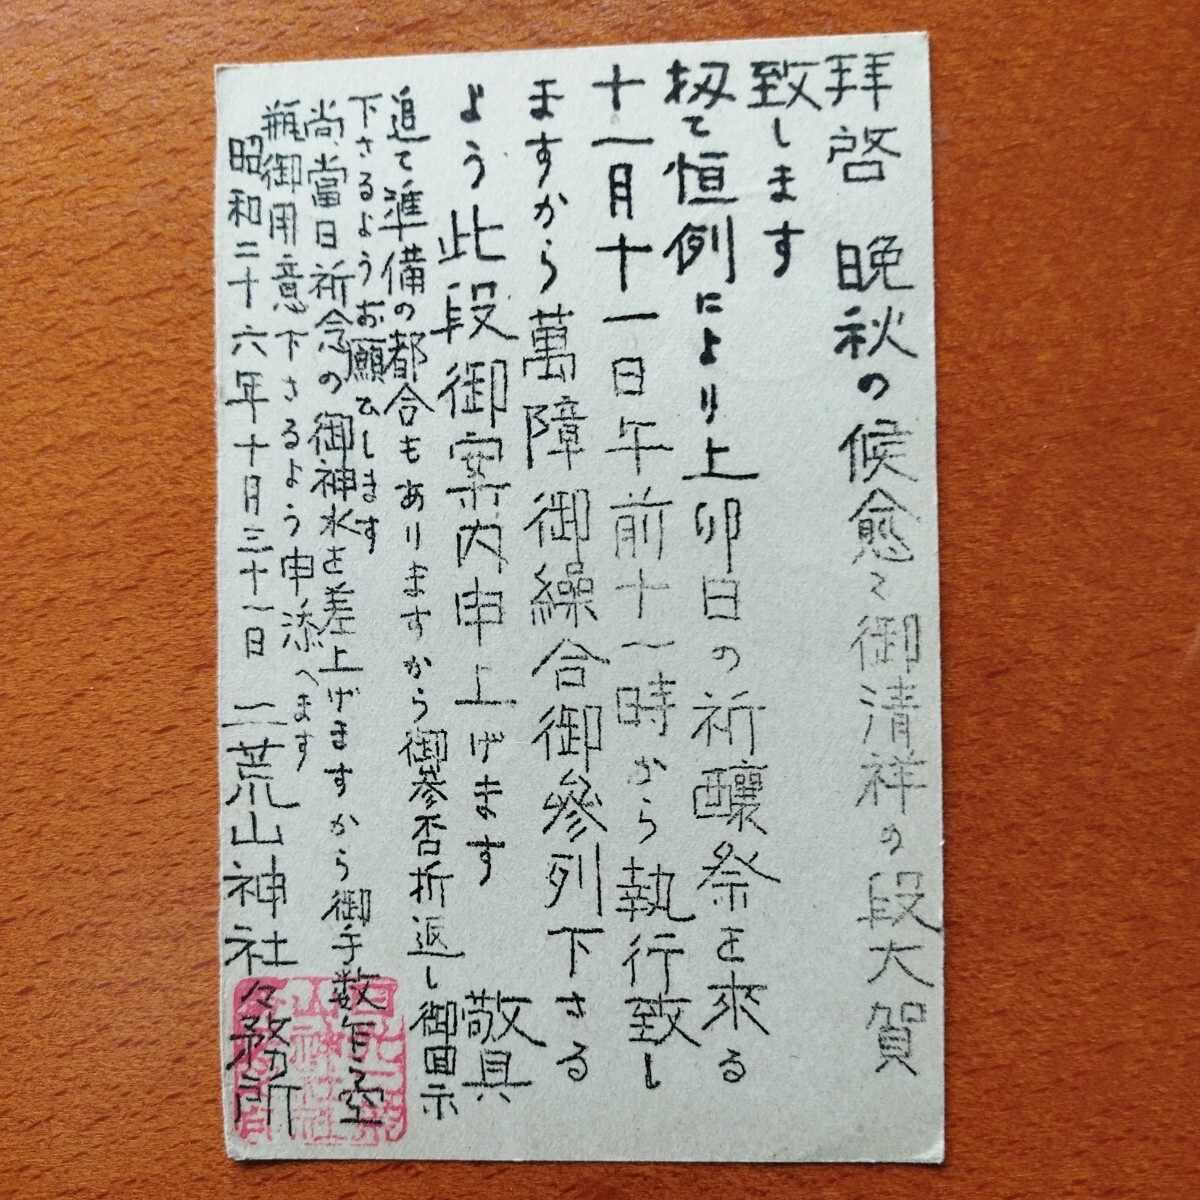 拝啓 晩秋の候愈々御清祥の段大賀
致します
扨て恒例により上卯日の祈釀祭を來る
十一月十一日午前十一時から執行致し
ますから萬障御繰合御參列下さる
よう此段御案内申上げます 敬具
追て準備の都合もありますから御参否折返し御回示
下さるようお願ひします
尚當日祈念の御神水を差上げますから御手数乍ら空
瓶御用意下さるよう申添へます
昭和二十六年十月三十一日 二荒山神社々務所